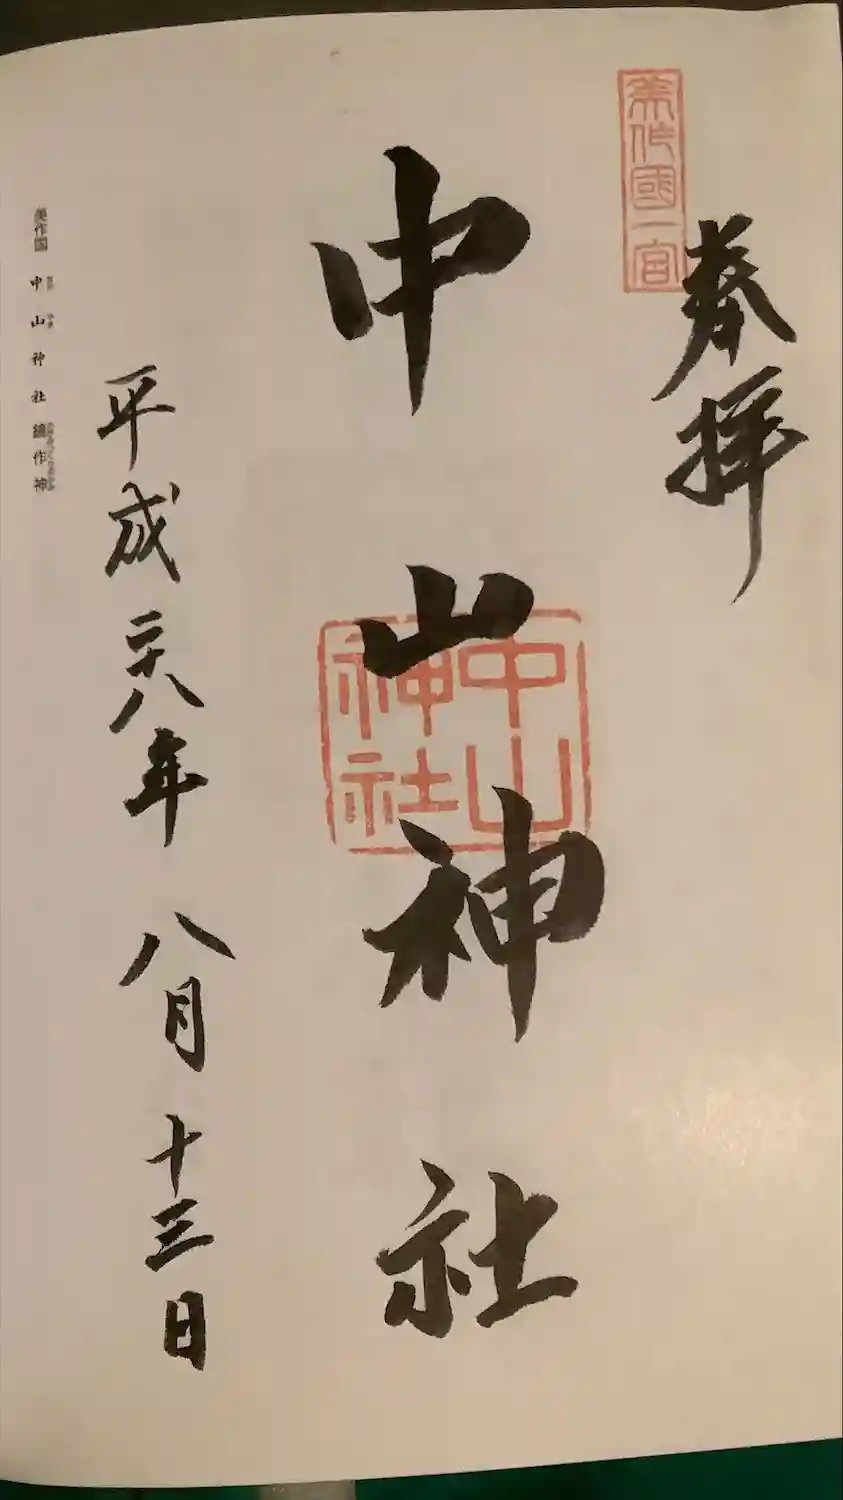 奉拝
美作國一宮
中山神社
中山
神社
平成二十八年 八月 十三日
美作国 中山神社 鏡作神